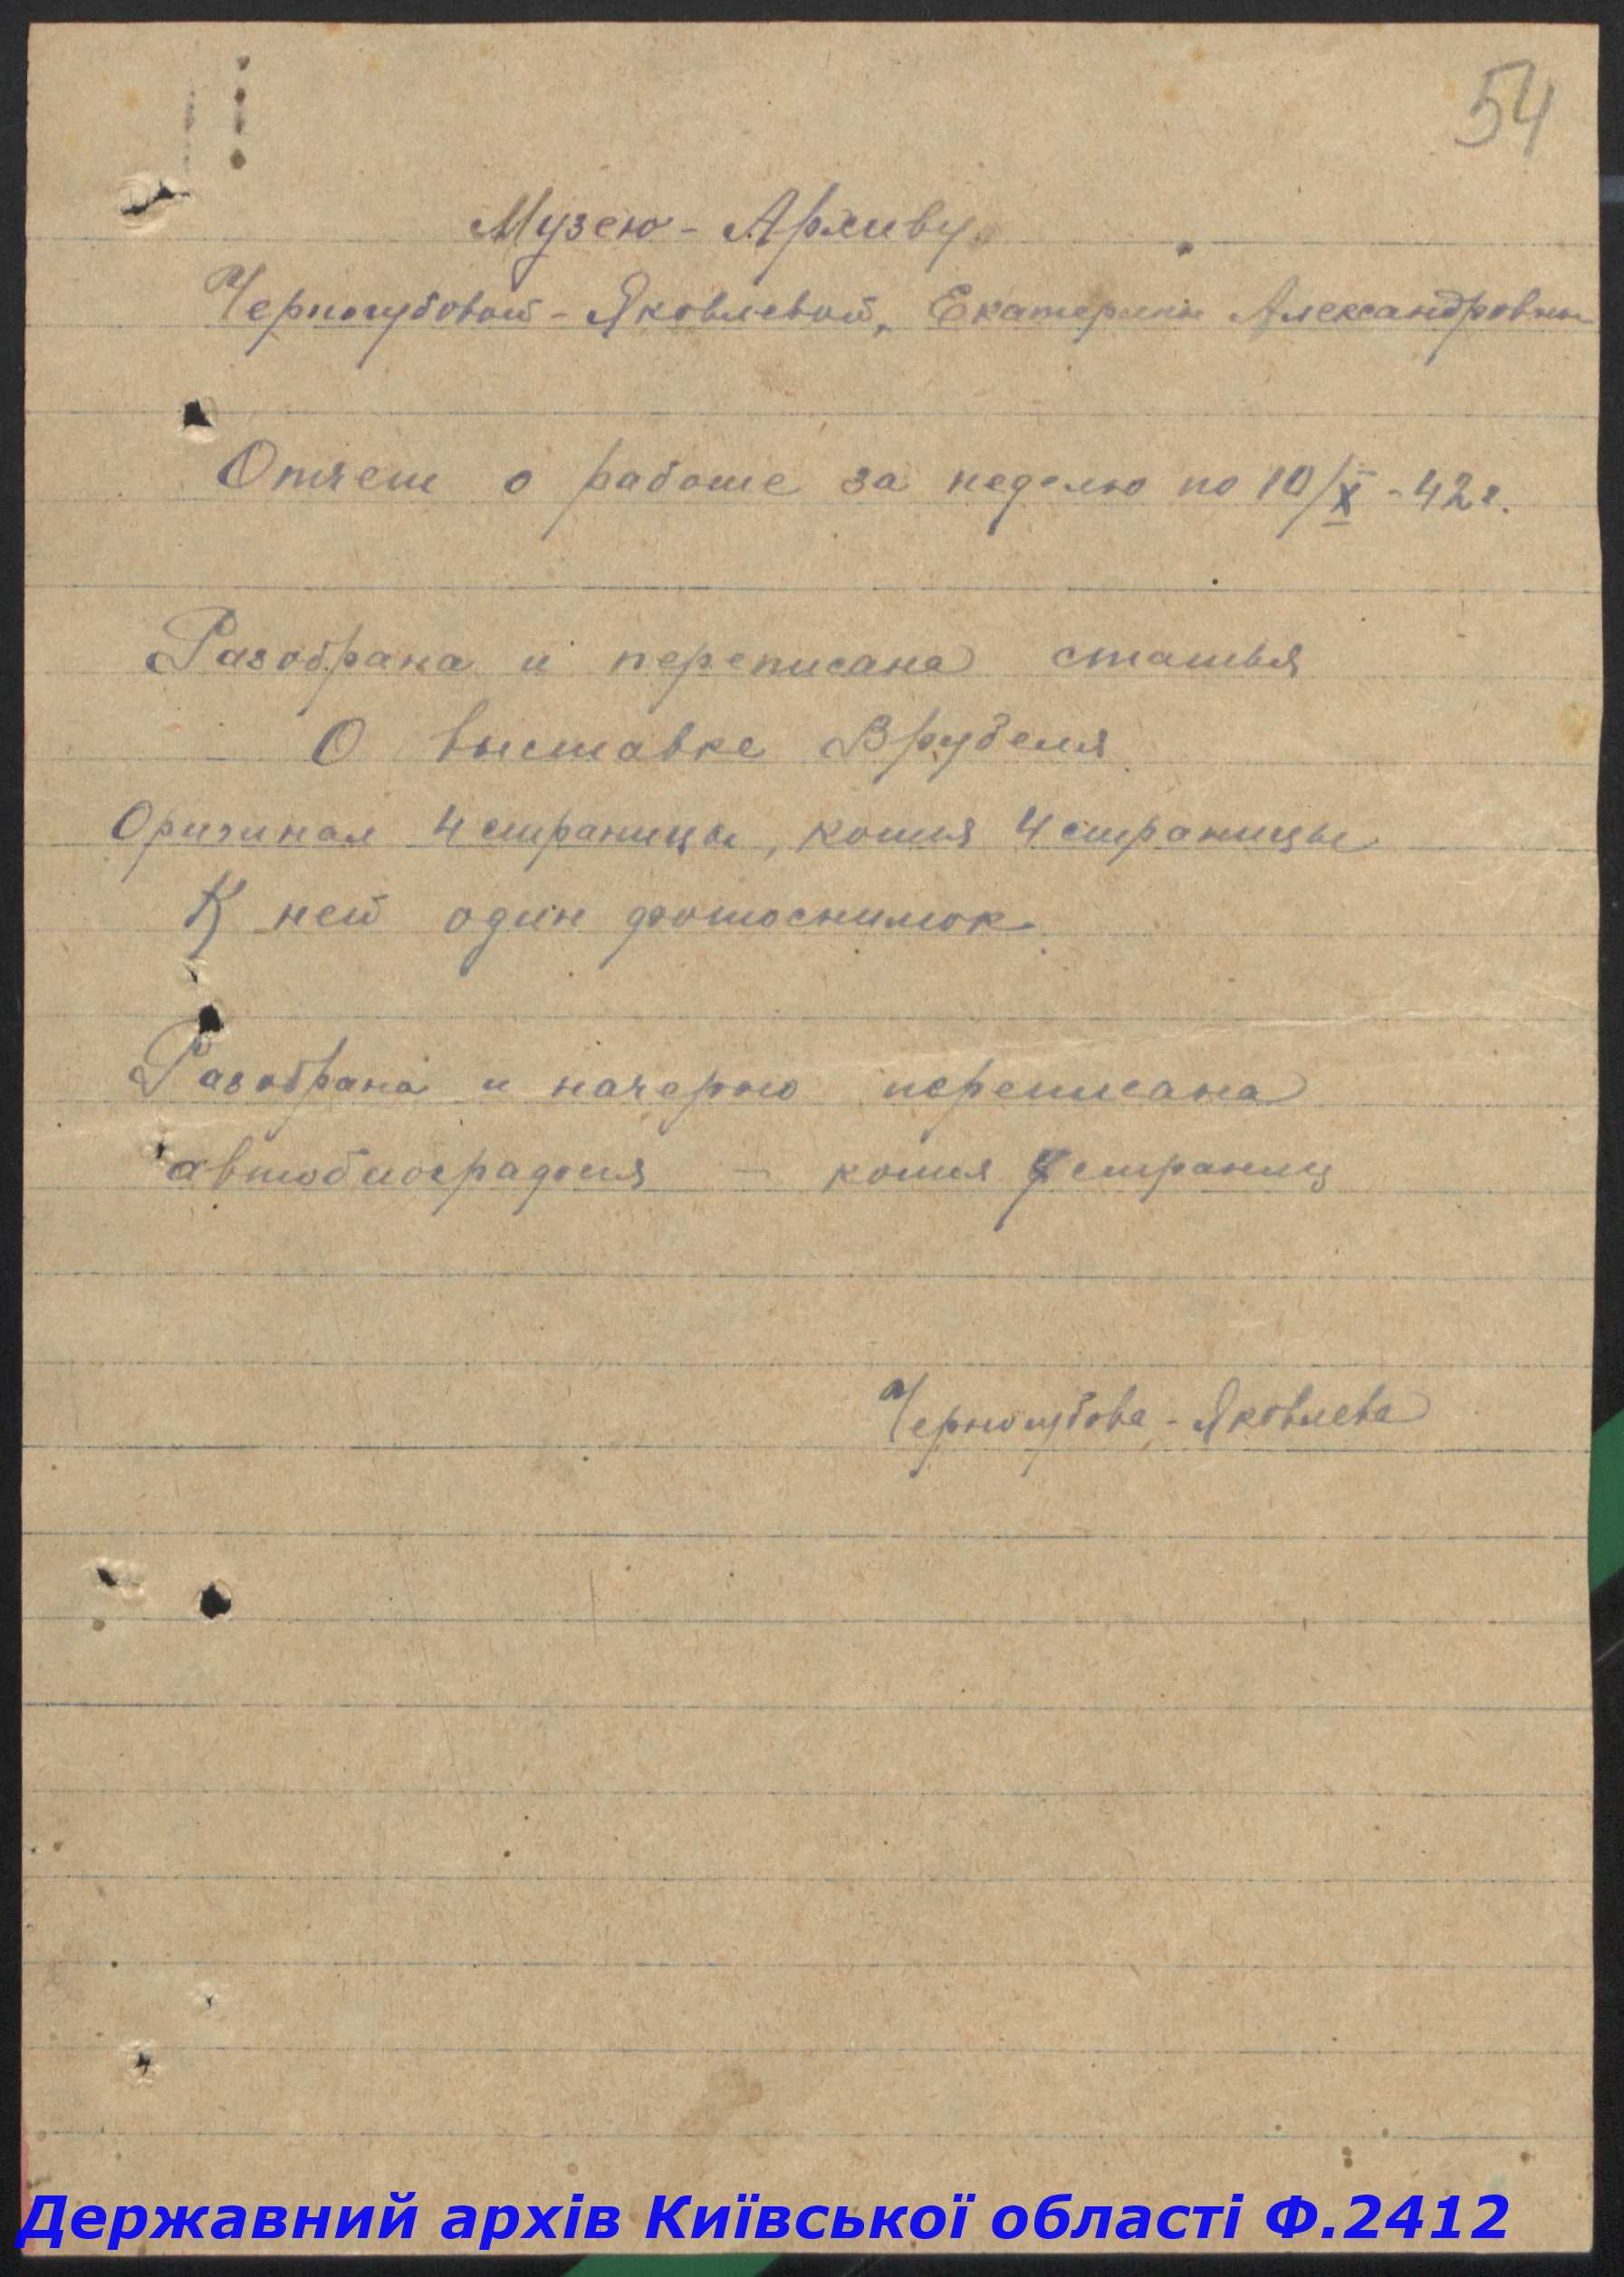 54
Музею - Архиву
Черногубовой - Яковлевой, Екатерины Александровны
Отчет о работе за неделю по 10/X - 42 г.
Разобрана и переписана статья
О выставке Врубеля
Оригинал 4 страницы, копия 4 страницы
К ней один фотоснимок.
Разобрана и начерно переписана
автобиография - копия страниц
Черногубова - Яковлева
Державний архів Київської області Ф.2412